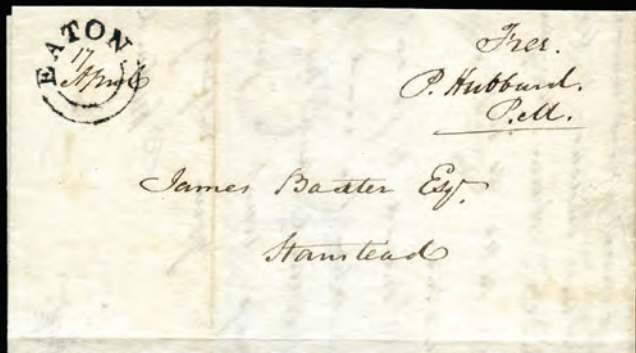 EATON
17
April
Free.
P. Hubbard.
P.M.
James Baxter Esqr.
Stanstead